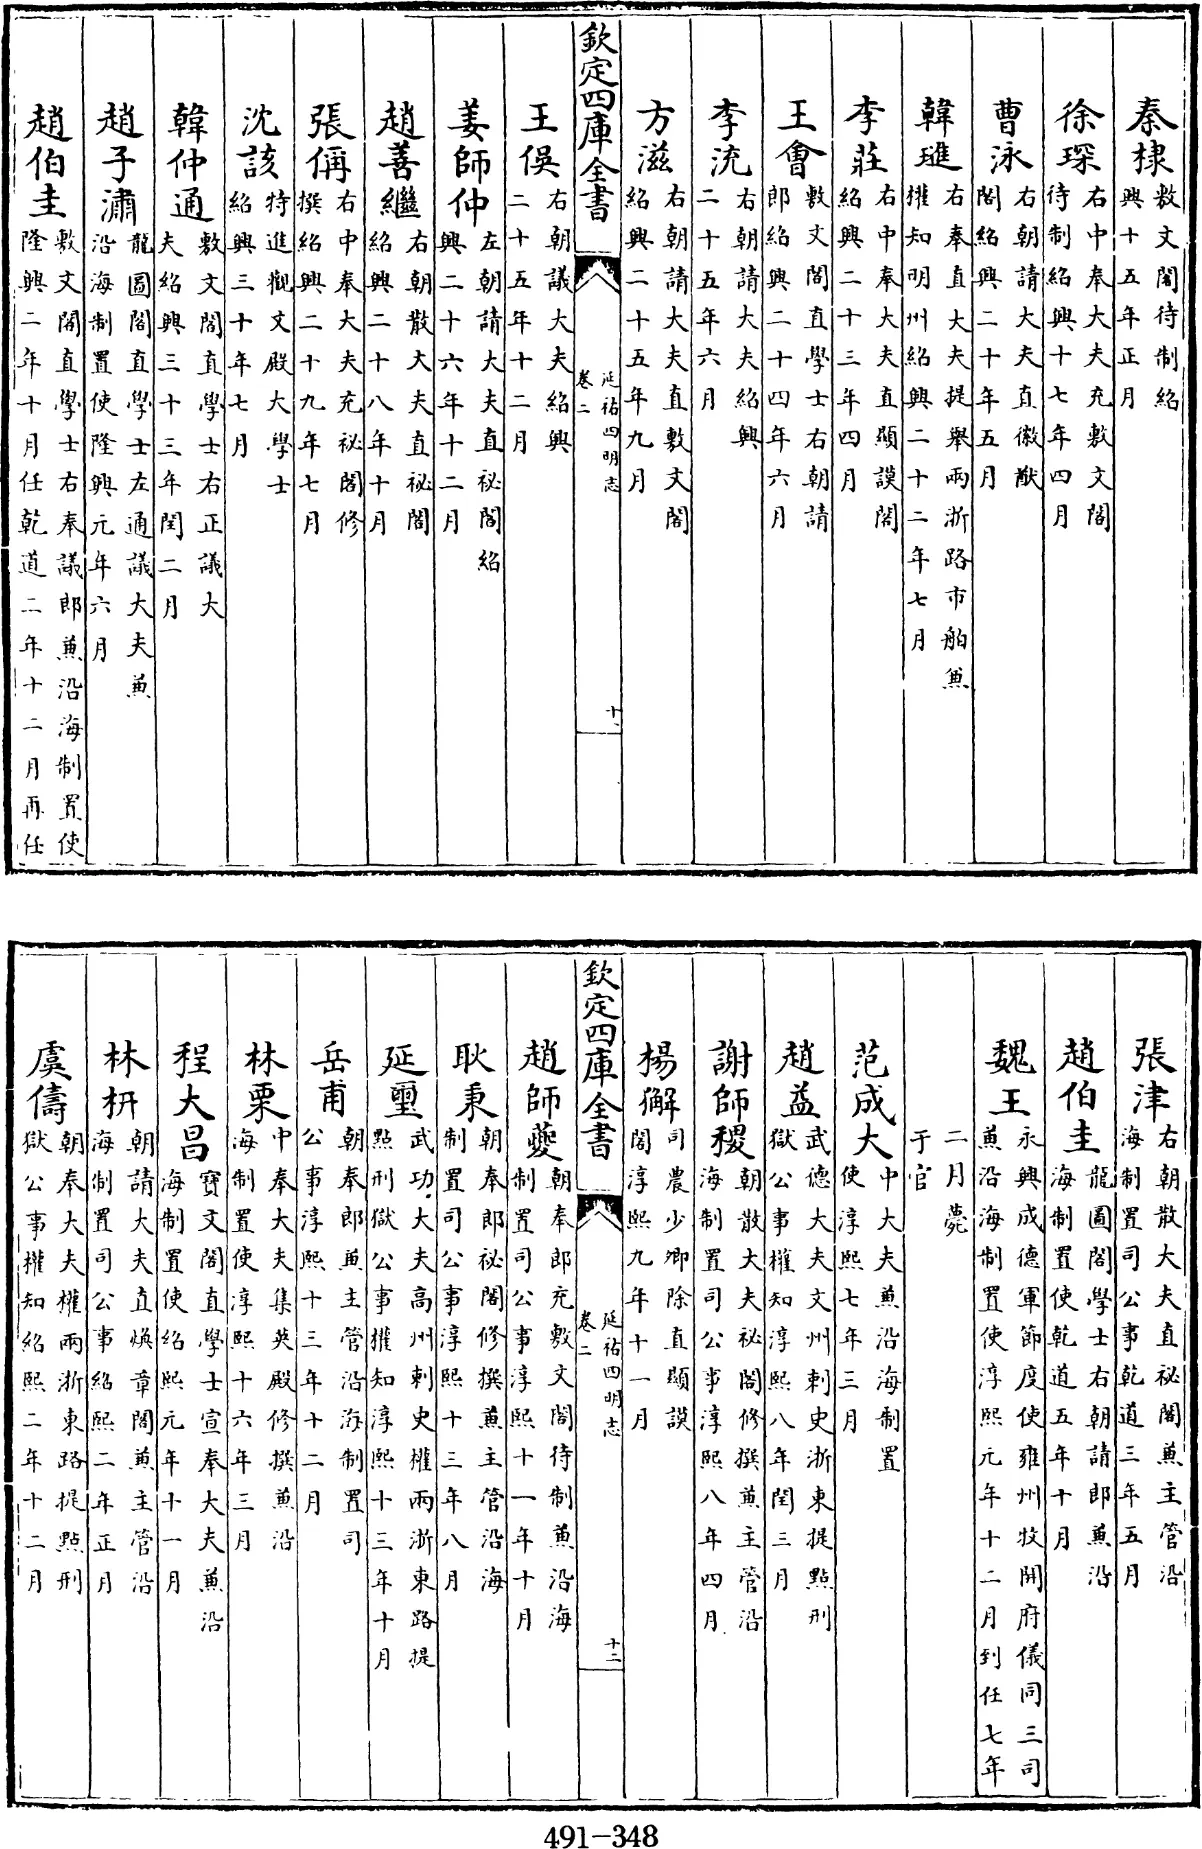 秦棣敷文閣待制紹興十五年正月
徐琛右中奉大夫充敷文閣待制紹興十七年四月
曹泳右朝請大夫直徽猷閣紹興二十年五月
韓璡右奉直大夫提舉兩浙路市舶兼權知明州紹興二十二年七月
李莊右中奉大夫直顯謨閣紹興二十三年四月
王會敷文閣直學士右朝請郎紹興二十四年六月
李流右朝請大夫紹興二十五年六月
方滋右朝請大夫直敷文閣紹興二十五年九月
欽定四庫全書 延祐四明志 卷二 十
王俁右朝議大夫紹興二十五年十二月
姜師仲左朝請大夫直秘閣紹興二十六年十二月
趙善繼右朝散大夫直祕閣紹興二十八年十月
張偁右中奉大夫充祕閣修撰紹興二十九年七月
沈該特進觀文殿大學士紹興三十年七月
韓仲通敷文閣直學士右正議大夫紹興三十三年閏二月
趙子潚龍圖閣直學士左通議大夫兼沿海制置使隆興元年六月
趙伯圭敷文閣直學士右奉議郎兼沿海制置使隆興二年十月任乾道二年十二月再任
張津右朝散大夫直秘閣兼主管沿海制置司公事乾道三年五月
趙伯圭龍圖閣學士右朝請郎兼沿海制置使乾道五年十月
魏王永興成德軍節度使雍州牧開府儀同三司兼沿海制置使淳熙元年十二月到任七年
二月薨于官
范成大中大夫兼沿海制置使淳熙七年三月
趙益武德大夫文州刺史浙東提點刑獄公事權知淳熙八年閏三月
謝師稷朝散大夫秘閣修撰兼主管沿海制置司公事淳熙八年四月
楊獬司農少卿除直顯謨閣淳熙九年十一月
欽定四庫全書 延祐四明志 卷二 十二
趙師夔朝奉郎充敷文閣待制兼沿海制置司公事淳熙十一年十月
耿秉朝奉郎秘閣修撰兼主管沿海制置司公事淳熙十三年八月
延璽武功大夫高州刺史權兩浙東路提點刑獄公事權知淳熙十三年十月
岳甫朝奉郎兼主管沿海制置司公事淳熙十三年十二月
林栗中奉大夫集英殿修撰兼沿海制置使淳熙十六年三月
程大昌寶文閣直學士宣奉大夫兼沿海制置使紹熙元年十一月
林枅朝請大夫直煥章閣兼主管沿海制置司公事紹熙二年正月
虞儔朝奉大夫權兩浙東路提點刑獄公事權知紹熙二年十二月
491-348